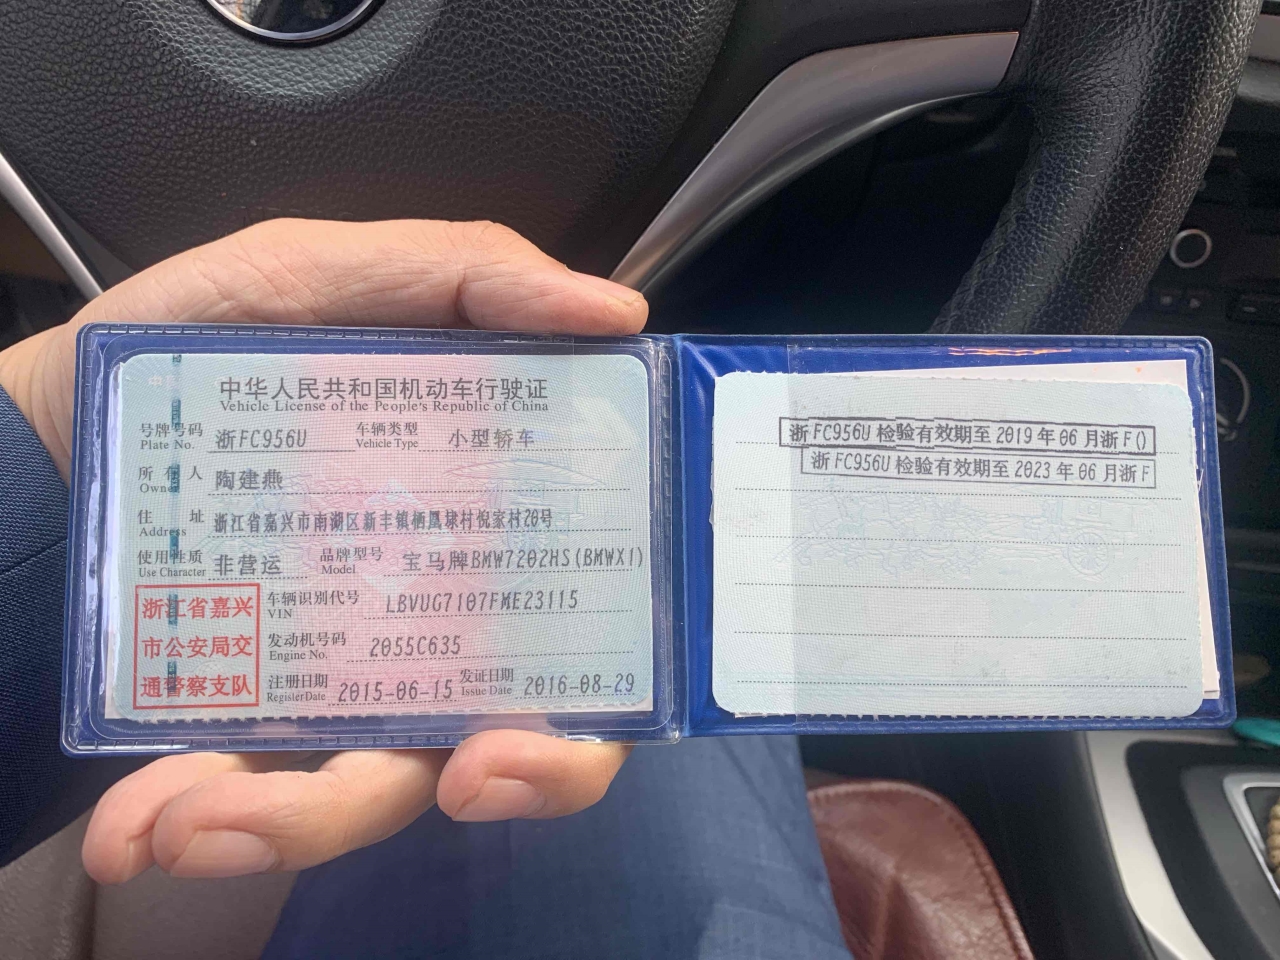 中华人民共和国机动车行驶证
Vehicle License of the People's Republic of China
号牌号码 浙FC956U 车辆类型 小型轿车
Plate No. Vehicle Type
所有人 陶建燕
Owner
住址 浙江省嘉兴市南湖区新丰镇栖凰埭村倪家村20号
Address
使用性质 非营运 品牌型号 宝马牌BMW7202HS(BMWX1)
Use Character Model
浙江省嘉兴
市公安局交
通警察支队
车辆识别代号 LBVUG7107FME23115
VIN
发动机号码 2055C635
Engine No.
注册日期 2015-06-15 发证日期 2016-08-29
Register Date Issue Date
浙FC956U检验有效期至2019年06月浙F()
浙FC956U检验有效期至2023年06月浙F